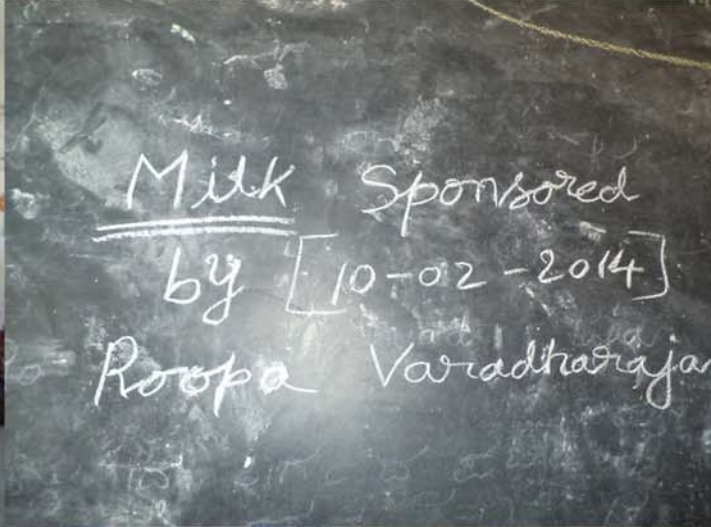 Milk Sponsored
by [10-02-2014]
Roopa Varadharajan